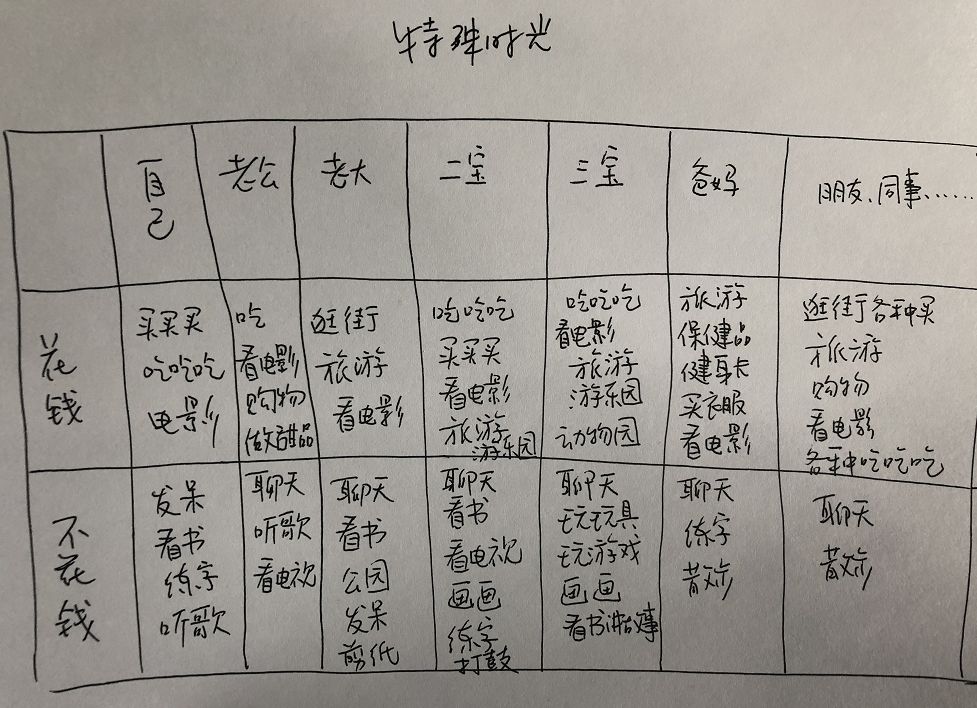 特殊时光
自己
老公
老大
二宝
三宝
爸妈
朋友、同事......
花钱
买买买
吃吃吃
电影
吃
看电影
购物
做甜品
逛街
旅游
看电影
吃吃吃
买买买
看电影
旅游
游乐园
吃吃吃
看电影
旅游
游乐园
动物园
旅游
保健品
健身卡
买衣服
看电影
逛街各种买
旅游
购物
看电影
各种吃吃吃
不花钱
发呆
看书
练字
听歌
聊天
听歌
看电视
聊天
看书
公园
发呆
剪纸
聊天
看书
看电视
画画
练字
打鼓
聊天
玩玩具
玩游戏
画画
看书讲故事
聊天
练字
散步
聊天
散步